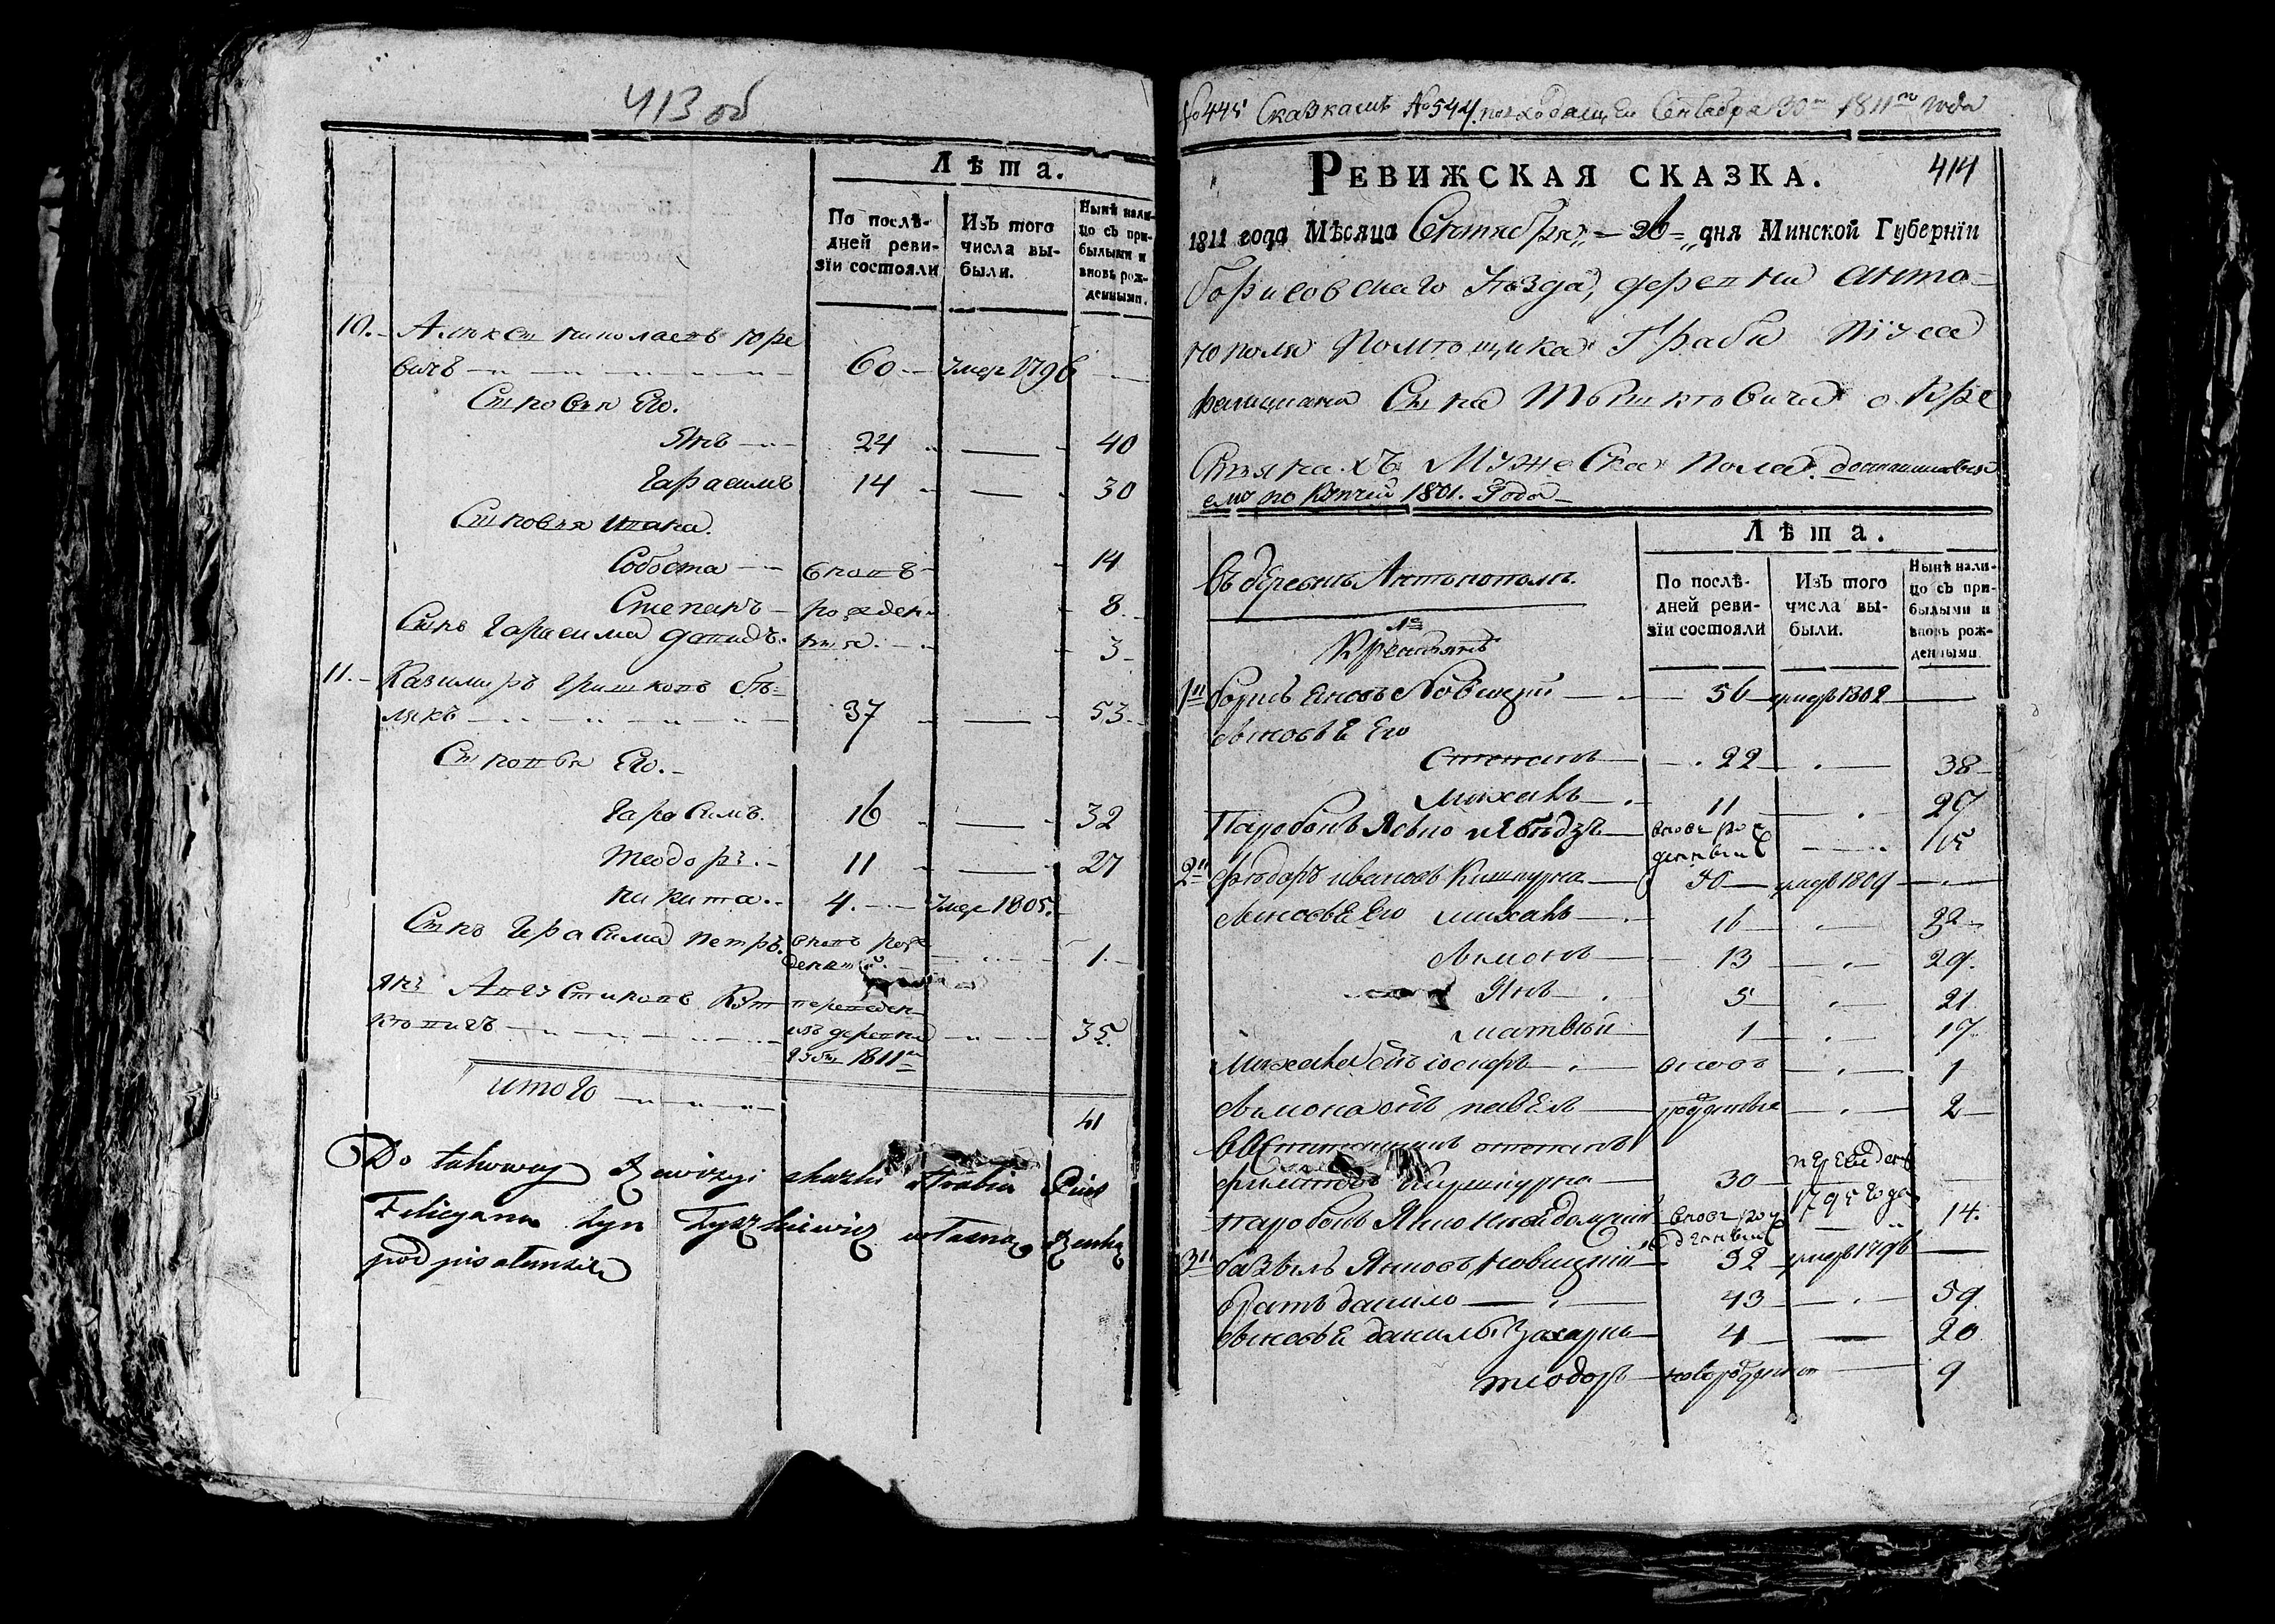 413 об
Лѣта.
По послѣ-
дней реви-
зїи состояли
Изъ того
числа вы-
были.
Нынѣ нали-
цо съ при-
былыми и
вновь рож-
денными.
10. Юре
вичъ 60 Умер 1796
Сыновья Его.
Янъ 24 40
Гарасимъ 14 30
Сыновья Яна.
Собоста вновъ 14
Степанъ рожден 8
Сынъ Гарасима Давидъ. ныя. 3
11. Казимиръ Гришковъ Бѣ-
лякъ 37 53
Сыновья Его.
Гарасимъ. 16 32
Теодоръ. 11 27
Никита. 4. Умер 1805.
Сынъ Герасима Петръ. вновъ рож
денный. 1.
Янъ переведен
из деревни 35.
1811
Итого 41
Do takowey Rewizyi skazki Hrabia Pius
Felicyana Syn Tyszkiewicz własną Ręką
podpisałemsie
№ 445 Сказкамъ № 544. Сентебра 30 1811 года
Ревижская сказка. 414
1811 года Мѣсяца Сентября 26 дня Минской Губернїи
Борисовскаго Уѣзда, деревни Анто-
нополя Помѣщика Графа Піуса
Фелициана Сына Тышкѣвича о Кре
стьянахъ Мужеска Пола. доставшихся
ему по Купчей 1801. Года
Лѣта.
Въ деревнѣ Антонополѣ.
Крестьянѣ
По послѣ-
дней реви-
зїи состояли
Изъ того
числа вы-
были.
Нынѣ нали-
цо съ при-
былыми и
вновь рож-
денными.
1 Борисъ Новицкій 56 умеръ 1802
Сыновье Его
Степанъ 22 38
Михалъ 11 27
Паробокъ вновъ рож 15
денный
2 Федоръ Ивановъ Кишкурна 50 умеръ 1809
Сыновье Его Михалъ 16 32
Симонъ 13 29.
Янъ 5 21
Матвѣй 1 17.
Михала сынъ Іосифъ вновъ 1
Симона сынъ Павелъ рожденные 2
переведенъ
30 1795 года
Паробокъ вновъ рож 14.
денный
3 Новицкий 32 умеръ 1796
Братъ Данило 43 59.
Сыновье Данилы Захарка 4 20
Теодоръ новорожденный 9